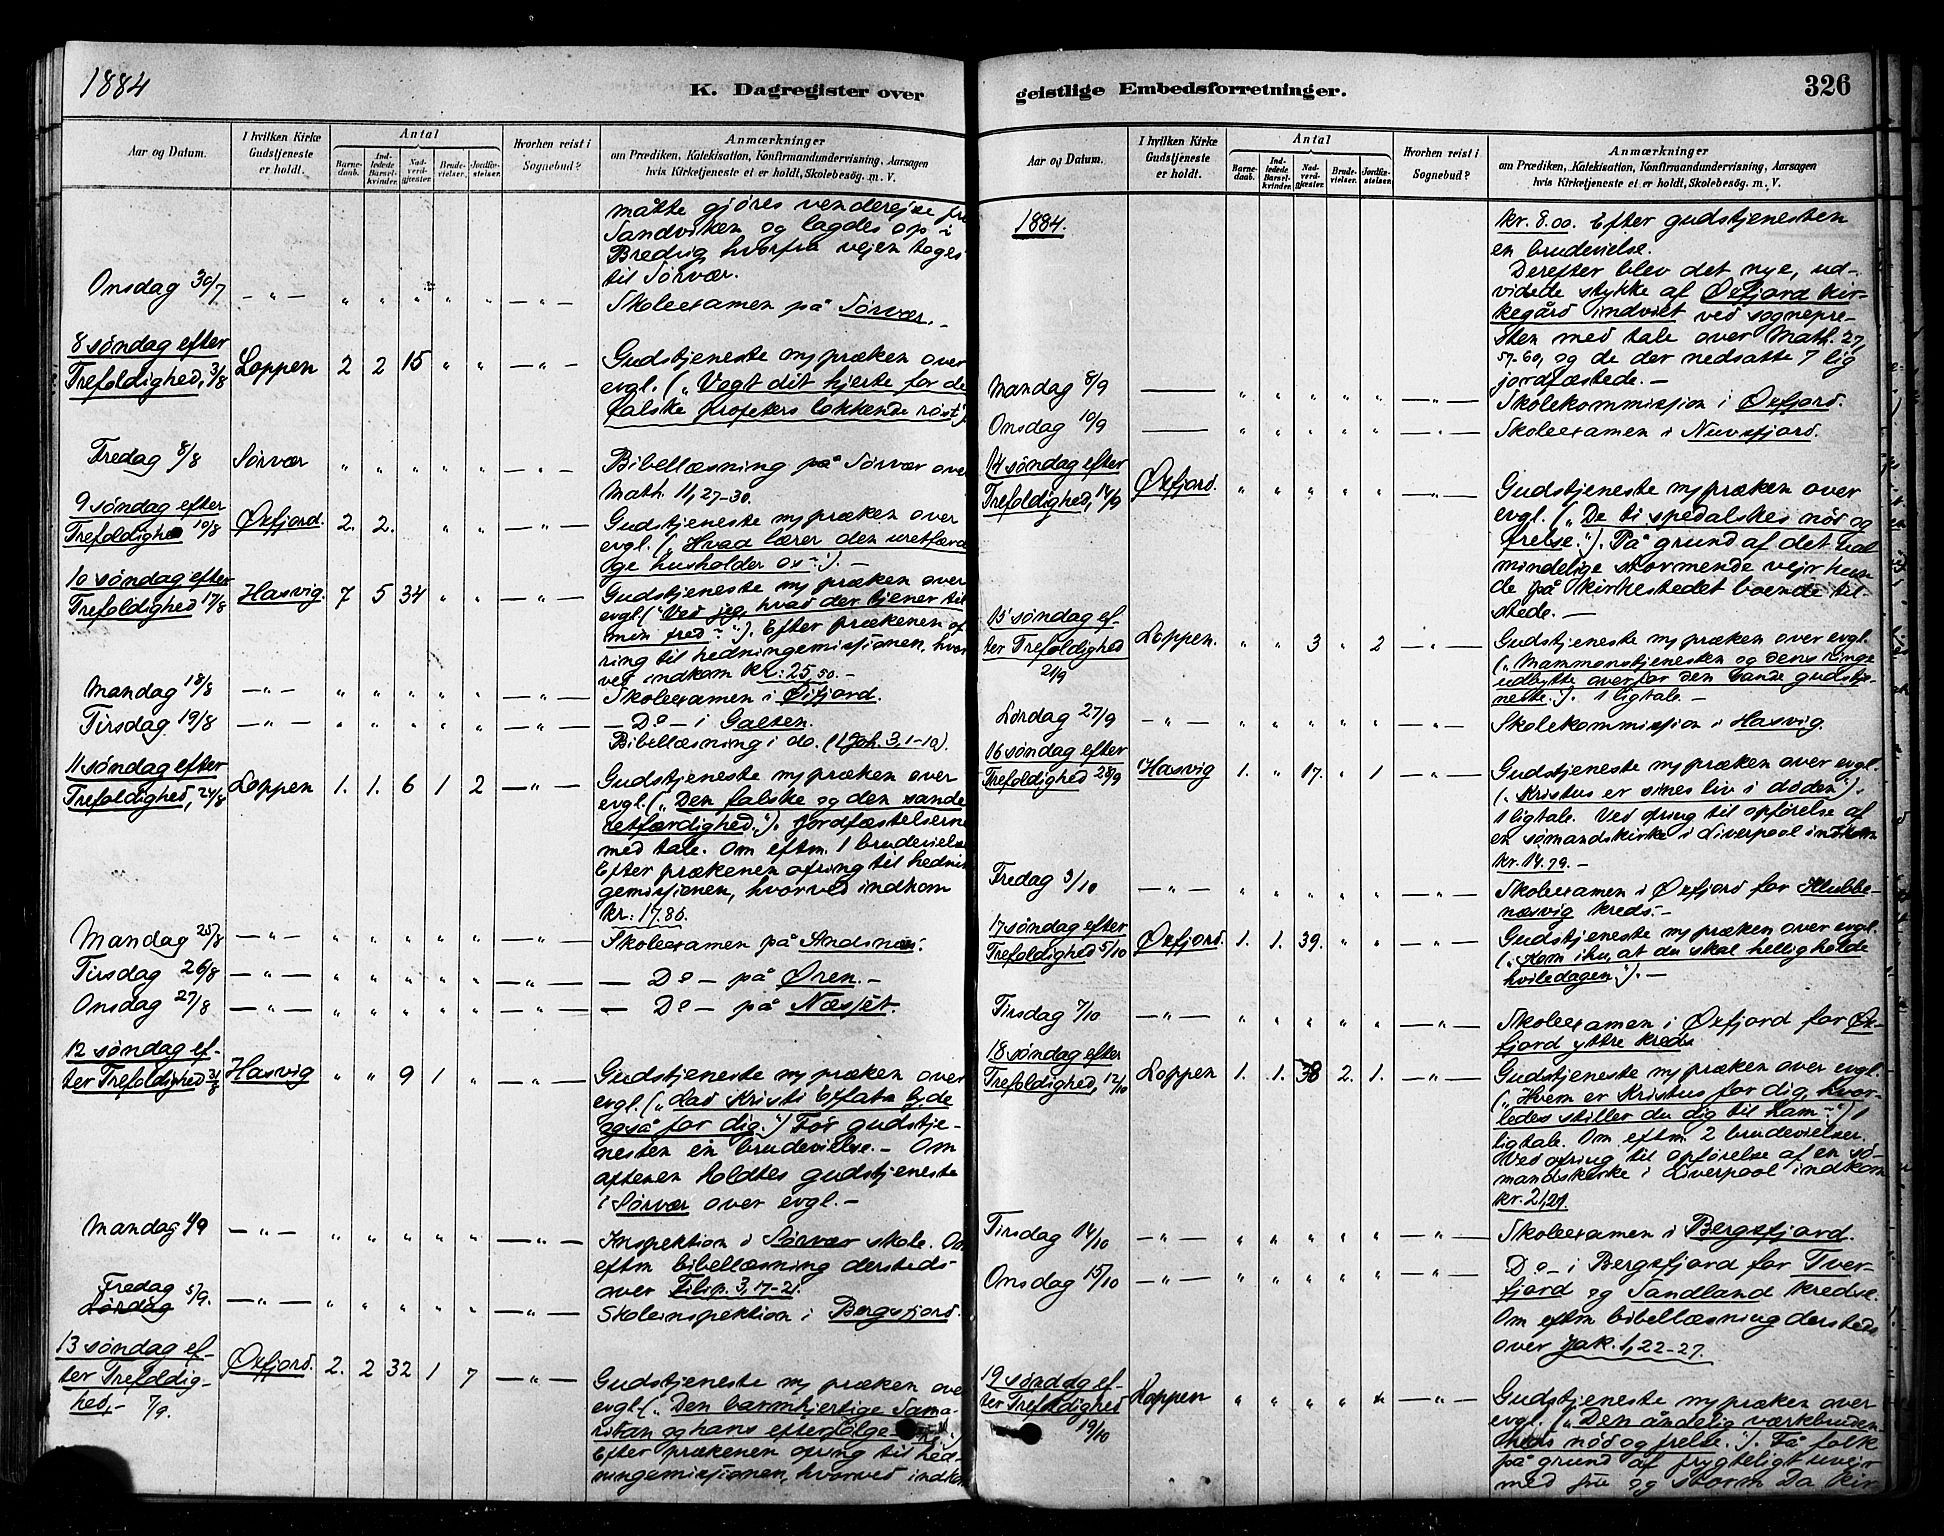 1884
K. Dagregister over
Aar og Datum.
I hvilken Kirke Gudstjeneste er holdt.
Antal
Barnedaab.
Indledede Barselkvinder.
Nadverdgjester.
Brudevielser.
Jordfæstelser.
Hvorhen reist i Sognebud?
Anmærkninger
om Prædiken, Katekisation, Konfirmandundervisning, Aarsagen
hvis Kirketjeneste ei er holdt, Skolebesøg. m. V.
måtte gjøres venderejse fra
Sandviken og lagdes op i
Bredvig hvorfra vejen toges
til Sørvær.
Onsdag 30/7 - " - " " " " " - " -
Skoleexamen på Sørvær. -
8 søndag efter
Trefoldighed, 3/8 Loppen 2 2 15 " " - " - Gudstjeneste m/ præken over
evgl. („Vogt dit hjerte for de
falske profeters lokkende røst").
Fredag 8/8 Sørvær " " " " " - " - Bibellæsning på Sørvær over
Math. 11, 27-30.
9 søndag efter
Trefoldighed 10/8 Øxfjord. 2. 2. " " - " - Gudstjeneste m/ præken over
evgl. („Hvad lærer den uretfærdi
ge husholder os-"). -
10 søndag efter
Trefoldighed 17/8 Hasvig. 7 5 34 " " - " - Gudstjeneste m/ præken over
evgl. („Ved jeg, hvad der tjener til
min fred-"). Efter prækenen of
ring til hedningemissionen, hvor
ved indkom kr: 25,50. -
Mandag 18/8 - " - " " " " " - " - Skoleexamen i Øifjord.
Tirsdag 19/8 - " - " " " " " - " - - Do - i Galten.
Bibellæsning i do. (1 Joh. 3, 1-10).
11 søndag efter
Trefoldighed, 24/8 Loppen 1. 1. 6 1 2 - " - Gudstjeneste m/ præken over
evgl. („Den falske og den sande
retfærdighed."). Jordfæstelserne
med tale. Om eftm. 1 brudevielse
Efter prækenen ofring til hednin
gemissionen, hvorved indkom
kr: 17.86.
Mandag 25/8 - " - " " " " " - " - Skoleexamen på Andsnæs.
Tirsdag 26/8 - " - " " " " " - " - - Do - på Øren. -
Onsdag 27/8 - " - " " " " " - " - - Do - på Næsset.
12 søndag ef-
ter Trefoldighed 31/8 Hasvig " " 9 1 " - " - Gudstjeneste m/ præken over
evgl. („Lad Kristi Effata lyde
også for dig.") Før gudstje-
nesten en brudevielse. - Om
aftenen holdtes gudstjeneste
i Sørvær over evgl. -
Mandag 1/9 - " - " " " " " - " - Inspektion i Sørvær skole. Om
eftm bibellæsning dersteds
over Filip. 3, 17-21.
Fredag
Lørdag 5/9. - " - " " " " " - " - Skoleinspektion i Bergsfjord.
13 søndag ef-
ter Trefoldig-
hed, - 7/9. Øxfjord. 2. 2 32 1 7 - " - Gudstjeneste m/ præken over
evgl. („Den barmhjertige Sama-
ritan og hans efterfølge
Efter prækenen ofring til hed-
ningemissionen, hvorved indkom
geistlige Embedsforretninger.
326
Aar og Datum.
I hvilken Kirke Gudstjeneste er holdt.
Antal
Barnedaab.
Indledede Barselkvinder.
Nadverdgjester.
Brudevielser.
Jordfæstelser.
Hvorhen reist i Sognebud?
Anmærkninger
om Prædiken, Katekisation, Konfirmandundervisning, Aarsagen
hvis Kirketjeneste ei er holdt, Skolebesøg. m. V.
1884.
kr. 8.00. Efter gudstjenesten
en brudevielse.
Derefter blev det nye, ud-
videde stykke af Øxfjord kir-
kegård indviet ved sognepre-
sten med tale over Math. 27,
57-60, og de der nedsatte 7 lig
jordfæstede. -
Mandag 8/9 — " " " " " - " - Skolekommission i Øxfjord.
Onsdag 10/9 — " " " " " - " - Skoleexamen i Nuvsfjord.
14 søndag efter
Trefoldighed, 14/9 Øxfjord. " " " " " - " - Gudstjeneste m/ præken over
evgl. („De ti spedalskes nød og
frelse."). På grund af det ual
mindelige stormende vejr kun
de på kirkestedet boende til-
stede. -
15 søndag ef-
ter Trefoldighed
21/9 Loppen. " " 3 " 2 - " - Gudstjeneste m/ præken over evgl.
(„Mammonstjenesten og dens ringe
udbytte overfor den sande gudstje-
neste."). 1 ligtale.
Lørdag 27/9 - " - " " " " " - " - Skolekommission i Hasvig.
16 søndag efter
Trefoldighed 28/9 Hasvig 1. " 17. " 1 - " - Gudstjeneste m/ præken over evgl.
(„Kristus er sines liv i døden").
1 ligtale. Ved ofring til opførelse af
en sømandskirke i Liverpool indkom
kr. 14.79. -
Fredag 3/10 - " - " " " " " - " - Skoleexamen i Øxfjord for Klubbe-
næsvig kreds. -
17 søndag efter
Trefoldighed 5/10 Øxfjord. 1. 1. 39. " " - " - Gudstjeneste m/ præken over evgl.
(„Kom ihu, at du skal helligholde
hviledagen."). -
Tirsdag 7/10 - " - " " " " " - " - Skoleexamen i Øxfjord for Øx-
fjord yttre kreds.
18 søndag efter
Trefoldighed, 12/10 Loppen 1. 1. 38 2. 1. - " - Gudstjeneste m/ præken over evgl.
(„Hvem er Kristus for dig, hvor-
ledes stiller du dig til ham-") 1
ligtale. Om eftm. 2 brudevielser.
Ved ofring til opførelse af en sø-
mandskirke i Liverpool indkom
kr. 21,21.
Tirsdag 14/10 - " - " " " " " - " - Skoleexamen i Bergsfjord.
Onsdag 15/10 - " - " " " " " - " - Do - i Bergsfjord for Tver-
fjord og Sandland kredse.
Om eftm bibellæsning dersteds
over Jak. 1, 22-27.
19 søndag ef-
ter Trefoldighed
19/10 Loppen " " " " " - " - Gudstjeneste m/ præken over
evgl. („Den åndelig værkbruden-
heds nød og frelse."). Få folk
på grund af frygteligt uvejr
med sne og storm Da kir